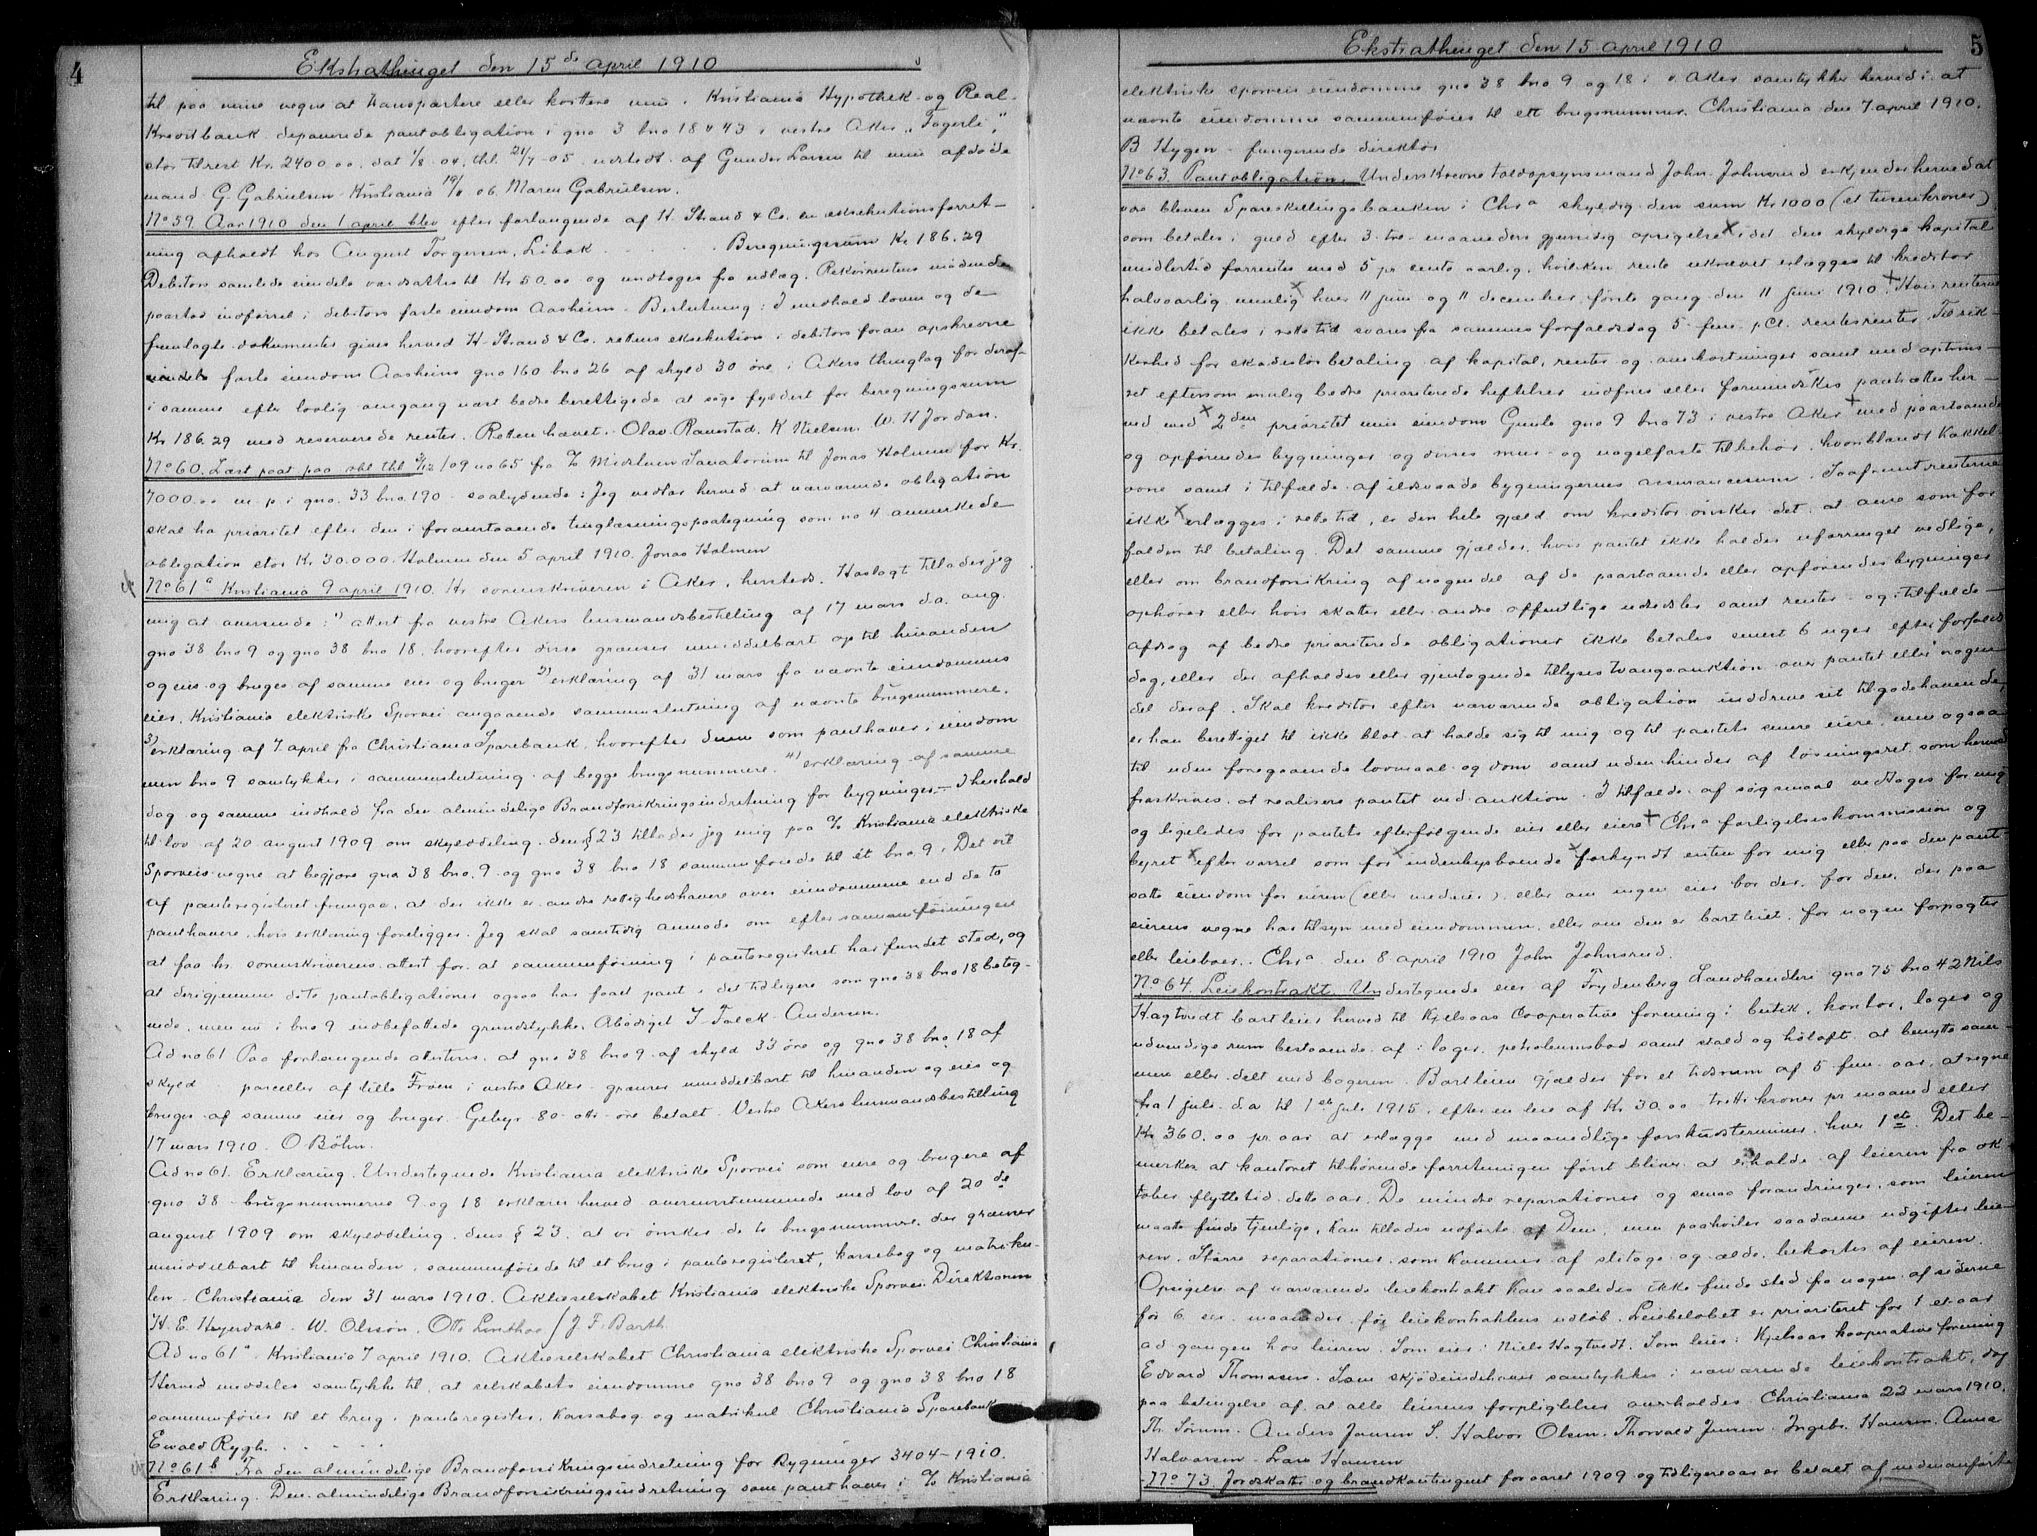 4
Ekstrathinget den 15de april 1910
til paa mine vegne at transportere eller kvittere min i Kristiania Hypothek- og Real-
Kreditbank deponerede pantobligation i gno 3 bno 18 & 43 i vestre Aker "Fagerli,"
stor tilrest Kr. 2400.00. dat 1/8 04, thl. 21/7-05 udstedt af Gunder Larsen til min afdøde
mand G. Gabrielsen. Kristiania 06. Maren Gabrielsen.
No 59. Aar 1910 den 1 april blev efter forlangende af H. Strand & Co. en eksekutionsforret-
ning afholdt hos August Torgersen, Libak . . . . Beregningssum Kr 186.29
Debitors samlede eiendele værdsattes til Kr 50.00 og undtoges fra udlæg. Rekvirentens mødende
paastod indførsel i debitors faste eiendom Aasheim. Beslutning: I medhold loven og de
fremlagte dokumenter gives herved H. Strand & Co. rettens eksekution i debitors foran opskrevne
faste eiendom Aasheim gno 160 bno 26 af skyld 30 øre i Akers thinglag for deraf
i samme efter lovlig omgang næst bedre berettigede at søge fyldest for beregningssum
Kr. 186.29 med reserverede renter. Retten hævet. Olav Ramstad. K Nielsen. W. H Jordan.
No 60. Læst paat paa obl thl 3/12 1909 no 65 fra A/S Midtuen Sanatorium til Jonas Holmen for Kr.
7000.00 m. p. i gno. 33 bno. 190 - saalydende: Jeg vedtar herved at nærværende obligation
skal ha prioritet efter den i foranstaaende tinglæsningspaategning som no 4 anmerkede
obligation stor Kr 30.000. Holmen den 5 april 1910. Jonas Holmen
No 61a Kristiania 9 april 1910. Hr sorenskriveren i Aker, hersteds. Hoslagt tillader jeg
mig at oversende: 1) attest fra vestre Akers lensmandsbestilling af 17 mars d.a. ang.
gno 38 bno 9 og gno 38 bno 18, hvorefter disse grænser umiddelbart op til hinanden
og eies og bruges af samme eier og bruger 2) erklæring af 31 mars fra nævnte eiendommes
eier, Kristiania elektriske Sporvei angaaende sammenslutning af nævnte brugsnummere.
3) erklæring af 7 april fra Christiania Sparebank, hvorefter denne som panthaver i eiendom
men bno 9 samtykker i sammenslutning af begge brugsnummere. 4) erklæring af samme
dag og samme indhold fra den almindelige Brandforsikringsindretning for bygninger. I henhold
til lov af 20 august 1909 om skylddeling, dens § 23 tillader jeg mig paa A/S Kristiania elektriske
Sporveis vegne at begjære gno 38 bno. 9 og gno 38 bno 18 sammenføiede til ét bno 9. Det vil
af panteregisteret fremgaa, at der ikke er andre rettighedshavere over eiendommene end de to
panthavere, hvis erklæring foreligger. Jeg skal samtidig anmode om efter sammenføiningen
at faa hr. sorenskriverens attest for at sammenføining i panteregisteret har fundet sted, og
at derigjennem de to pantobligationer ogsaa har faaet pant i det tidligere som gno 38 bno 18 beteg-
nede, men nu i bno 9 indbefattede grundstykke. Ærbødigst I. Falck-Andersen.
Ad no 61 Paa forlangende attesteres at gno 38 bno 9 af skyld 33 øre og gno 38 bno 18 af
skyld parceller af lille Frøen i vestre Aker - grænser umiddelbart til hinanden og eies og
bruges af samme eier og bruger. Gebyr 80 - otti - øre betalt. Vestre Akers lensmandsbestilling
17 mars 1910. O Bøhn.
Ad no 61. Erklæring. Undertegnede Kristiania elektriske Sporvei som eiere og brugere af
gno 38 - brugsnummerne 9 og 18 erklærer herved overensstemmende med lov af 20de
august 1909 om skylddeling, dens § 23, at vi ønsker de to brugsnummere, der grænser
umiddelbart til hinanden, sammenføiede til et brug i panteregisteret, kassebog og matriku-
len. Christiania den 31 mars 1910. Aktieselskabet Kristiania elektriske Sporvei. Direktionen
H. E. Heyerdahl. W. Olsson. / J F. Barth
Ad no 61a. Kristiania 7 april 1910. Aktieselskabet Christiania elektriske Sporvei Christiania
Herved meddeles samtykke til, at selskabets eiendomme gno 38 bno 9 og gno 38 bno 18
sammenføies til et brug i panteregister, kassabog og matrikul Christiania Sparebank
Ewald Rygh. . . . .
No 61b Fra den almindelige Brandforsikringsindretning for Bygninger 3404-1910.
Erklæring. Den almindelige Brandforsikringsindretning som panthaver i A/S Kristiania
Ekstrathinget den 15 april 1910
5
elektriske sporveis eiendomme gno 38 bno 9 og 18 i v. Aker samtykker herved i at
nævnte eiendomme sammenføies til ett brugsnummer. Christiania den 7. april 1910.
B Hygen - fungerende direktør
No 63. Pantobligation. Underskrevne toldopsynsmand John Johnsrud erkjender herved at
være bleven Spareskillingsbanken i Chra skyldig den sum Kr 1000 (et tusenkroner)
som betales i gued efter 3 - tre - maaneders gjensidig opsigelse x idet den skyldige kapital
imidlertid forrentes med 5 pr cento aarlig, hvilken rente ukrævet erlægges til kreditor
halvaarlig nemlig x hver 11 juni og 11 december, første gang den 11 juni 1910 + Hvis renterne
ikke betales i rette tid svares fra sammes forfaldsdag 5 - fem - pCt. rentesrenter. Til sik-
kerhed for skadesløs betaling af kapital, renter og omkostninger samt med optrins-
ret eftersom mulig bedre prioriterede heftelser indfries eller formindskes pantsættes her-
ved med x 2den prioritet min eiendom Gunle gno 9 bno 73 i vestre Aker + med paastaaende
og opførendes bygninger og disses mur- og nagelfaste tilbehør, hvoriblandt kakkel-
ovne samt i tilfælde af ildsvaade bygningernes assurancesum. Saafremt renterne
ikke x erlægges i rette tid, er den hele gjæld om kreditor ønsker det, at anse som for
falden til betaling. Det samme gjælder, hvis pantet ikke holdes uforringet vedlige,
eller om brandforsikring af nogen del af de paastaaende eller opførendes bygninger
ophører eller hvis skatter eller andre offentlige udredsler samt renter og i tilfælde
afdrag af bedre prioriterede obligationer ikke betales senest 6 uger efter forfalds
dag, eller der afholdes eller gjentagende tillyses tvangsauktion over pantet eller nogen
del deraf. Skal kreditor efter nærværende obligation inddrive sit tilgodehavende,
er han berettiget til ikke blot at holde sig til mig og til pantets senere eiere, men ogsaa
til uden foregaaende lovmaal og dom samt uden hinder af løsningsret, som herved
fraskrives, at realisere pantet ved auktion. I tilfælde af søgsmaal vedtages for mig
og ligeledes for pantets efterfølgende eier eller eiere + Chra forligelseskommission og
byret x efter varsel som for x indenbysboende x forkyndt enten for mig eller paa den pant
satte eiendom for eieren (eller medeier), eller om ingen eier bor der, for den, der paa
eierens vegne har tilsyn med eiendommen, eller om den er bortleiet, for nogen forpagter
eller leieboer. Chra den 8 april 1910 John Johnsrud.
No 64. Leiekontrakt. Undertegnede eier af Frydenberg Landhandleri gno 75 bno 42 Nils
Hagtvedt bortleier herved til Kjelsaas Cooperative forening: butik, kontor, lager og
udvendige rum bestaaende af: lager, petroleumsbod samt stald og høloft at benytte sam-
men eller delt med bageren. Bortleien gjælder for et tidsrum af 5 - fem - aar, at regne
fra 1 juli d. a til 1ste juli 1915, efter en leie af Kr 30.00 tretti kroner pr maaned eller
Kr 360.00 pr. aar at erlægge med maanedlige forskudsterminer hver 1ste. Det be-
merkes at kontoret tilhørende forretningen først bliver at erholde af leieren fra ok
tober flyttetid dette aar. De mindre reparationer og smaa forandringer, som leieren
maatte finde tjenlige, kan tillades udførte af Dem, men paahviler saadanne udgifter leie-
ren. Større reparationer som kommer af slitage og ælde, bekostes af eieren.
Opsigelse af nærværende leiekontrakt kan saaledes ikke finde sted fra nogen af siderne
før 6 - sex - maaneder før leiekontraktens udløb. Leiebeløbet er prioriteret for 1 et aar
ad gangen hos leieren. Som eier: Niels Hagtvedt. Som leier: Kjelsaas kooperative forening
Edvard Thomasen. Som skjødeindehaver samtykkes i nærværende leiekontrakt, dog
paa betingelse af at alle leierens forpligtelser overholdes. Christiania 22 mars 1910.
Th. Sørum. Anders Jensen S. Halvor Olsen. Thorvald Jensen. Ingebr. Hansen. Anna
Halvorsen - Lars Hansen
No 73. Jordskatte og brandkontingent for aaret 1909 og tidligere aar er betalt af nedenanførte